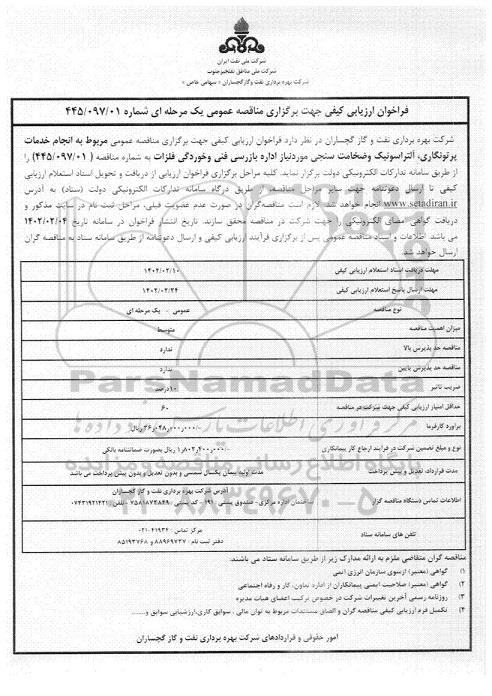 شرکت ملی نفت ایران
شرکت ملی مناطق نفتخیزجنوب
شرکت بهره برداری نفت وگازگچساران « سهامی خاص »
فراخوان ارزیابی کیفی جهت برگزاری مناقصه عمومی یک مرحله ای شماره ۴۴۵/۰۹۷/۰۱
شرکت بهره برداری نفت و گاز گچساران در نظر دارد فراخوان ارزیابی کیفی جهت برگزاری مناقصه عمومی مربوط به انجام خدمات
پرتونگاری، آلتراسونیک وضخامت سنجی موردنیاز اداره بازرسی فنی وخوردگی فلزات به شماره مناقصه ( ۴۴۵/۰۹۷/۰۱) را
از طریق سامانه تدارکات الکترونیکی دولت برگزار نماید. کلیه مراحل برگزاری فراخوان ارزیابی از دریافت و تحویل اسناد استعلام ارزیابی
کیفی تا ارسال دعوتنامه جهت سایر مراحل مناقصه، از طریق درگاه سامانه تدارکات الکترونیکی دولت (ستاد) به آدرس
www.setadiran.ir انجام خواهد شد. لازم است مناقصه‌گران در صورت عدم عضویت قبلی، مراحل ثبت نام در سایت مذکور و
دریافت گواهی امضای الکترونیکی را جهت شرکت در مناقصه محقق سازند. تاریخ انتشار فراخوان در سامانه تاریخ ۱۴۰۲/۰۲/۰۴
می باشد اطلاعات و اسناد مناقصه عمومی پس از برگزاری فرآیند ارزیابی کیفی و ارسال دعوتنامه از طریق سامانه ستاد به مناقصه گران
ارسال خواهد شد.
مهلت دریافت اسناد استعلام ارزیابی کیفی ۱۴۰۲/۰۲/۱۰
مهلت ارسال پاسخ استعلام ارزیابی کیفی ۱۴۰۲/۰۲/۲۴
نوع مناقصه عمومی - یک مرحله ای
میزان اهمیت مناقصه متوسط
مناقصه حد پذیرش بالا ندارد
مناقصه حد پذیرش پایین ندارد
ضریب تاثیر ۱۰درصد
حداقل امتیاز ارزیابی کیفی جهت شرکت در مناقصه ۶۰
برآورد کارفرما ۳۶٫۰۴۸٫۰۰۰٫۰۰۰/-ریال
نوع و مبلغ تضمین شرکت در فرآیند ارجاع کار پیمانکاری ۱٫۸۰۲٫۴۰۰٫۰۰۰/- ریال بصورت ضمانتنامه بانکی
مدت قرارداد، تعدیل و پیش پرداخت مدت اولیه پیمان یکسال شمسی و بدون تعدیل و بدون پیش پرداخت می باشد
اطلاعات تماس دستگاه مناقصه گزار آدرس شرکت بهره برداری نفت و گاز گچساران
ساختمان اداره مرکزی- صندوق پستی ۱۹۱ - کد پستی ۷۵۸۱۸۷۳۸۴۹ -تلفن: ۰۷۴۳۱۹۲۱۴۲۱
تلفن های سامانه ستاد مرکز تماس : ۴۱۹۳۴-۰۲۱
دفتر ثبت نام : ۸۸۹۶۹۷۳۷ و ۸۵۱۹۳۷۶۸
مناقصه گران متقاضی ملزم به ارائه مدارک زیر از طریق سامانه ستاد می باشند.
۱) گواهی (معتبر) ازسوی سازمان انرژی اتمی
۲) گواهی (معتبر) صلاحیت ایمنی پیمانکاران از اداره تعاون، کار و رفاه اجتماعی
۳) روزنامه رسمی آخرین تغییرات شرکت در خصوص ترکیب اعضای هیات مدیره
۴) تکمیل فرم ارزیابی کیفی مناقصه گران و الصاق مستندات مربوط به توان مالی ، سوابق کاری،ارزشیابی سوابق و......
امور حقوقی و قراردادهای شرکت بهره برداری نفت و گاز گچساران
ParsNamadData